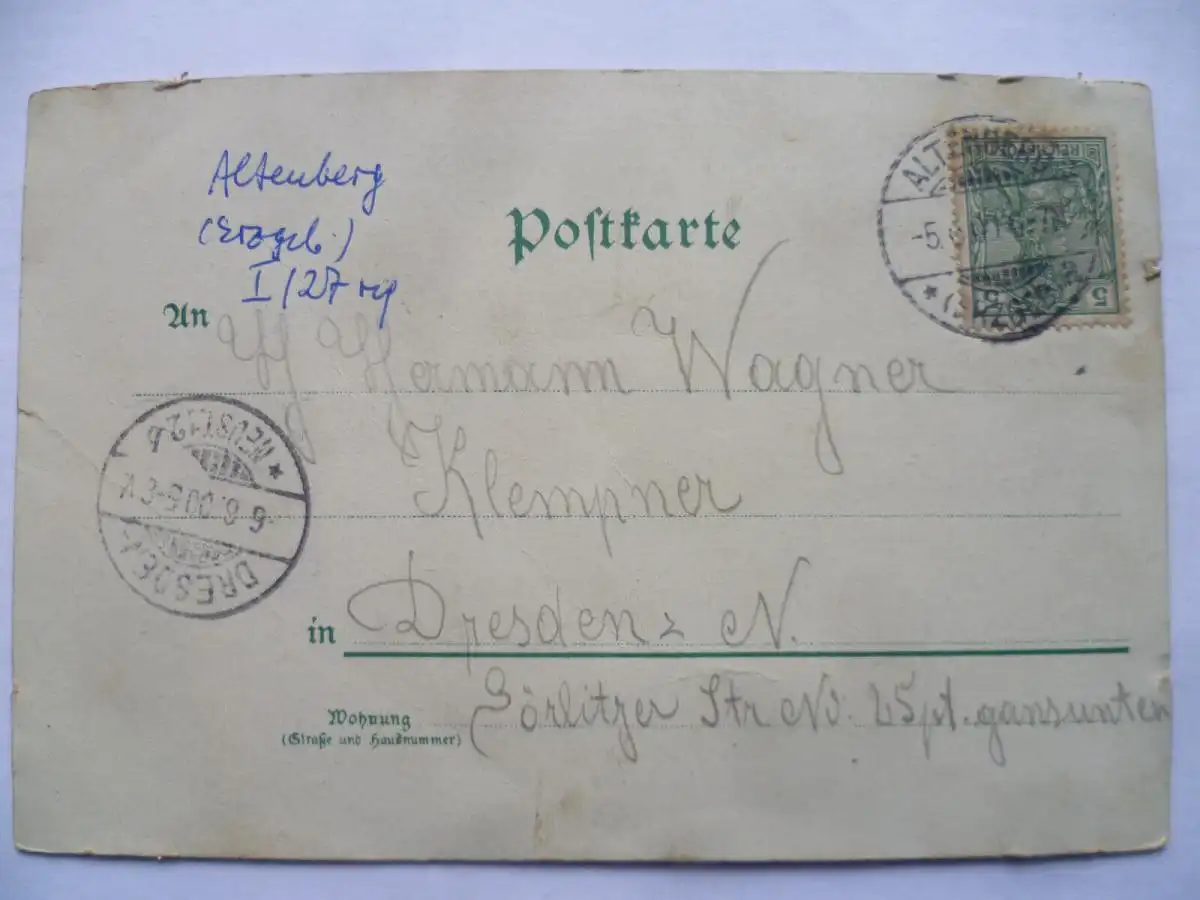 Altenberg
(Erzgeb.)
I/27 rg
Postkarte
An
Hermann Wagner
Klempner
in Dresden = N.
Wohnung
(Straße und Hausnummer)
Görlitzer Str N. 25 pt. gansunten
ALTENBERG
-5. 8.
(ERZGEB.)
REICHSPOST
5 5
DRESDEN-
6. 8. 00 5-6 V.
NEUST. 12 b